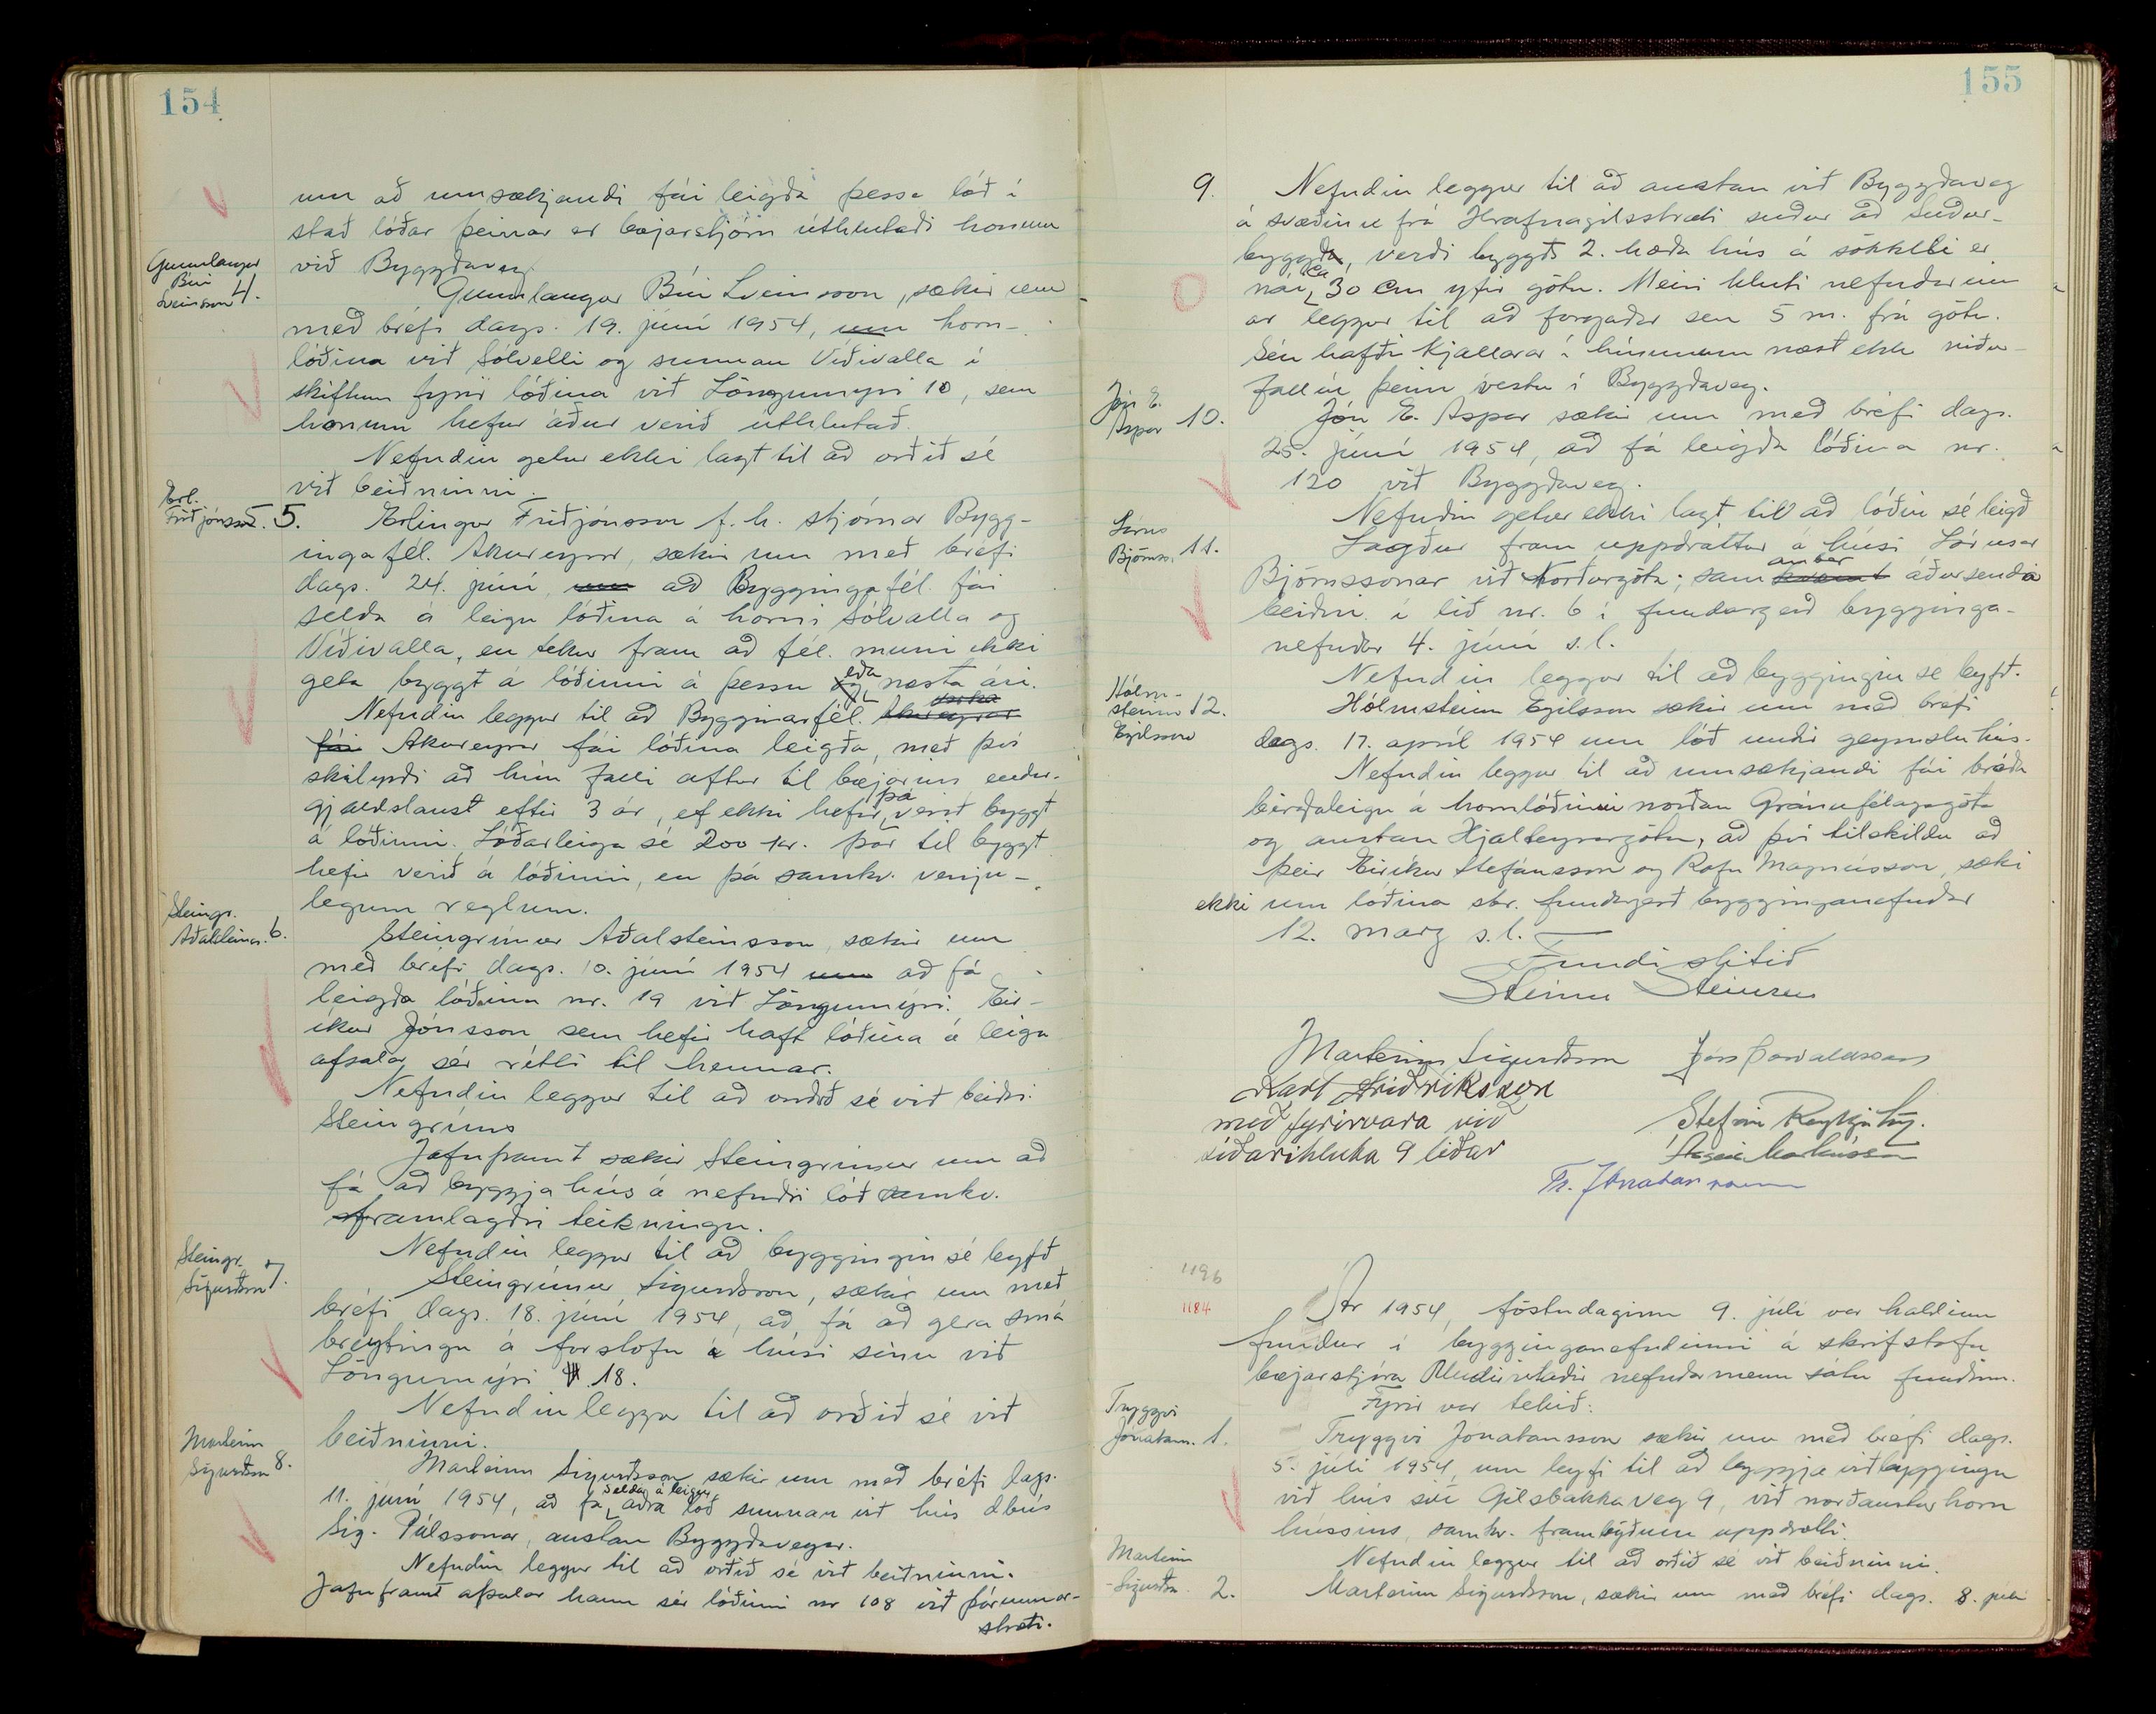 154
um að umsækjandi fái leigða þessa lóð í
stað lóðar þeirrar er bæjarstjórn úthlutaði honum
við Byggðaveg.
Gunnlaugur
Búi
Sveinsson 4.
Gunnlaugur Búi Sveinsson, sækir um
með bréfi dags. 19. júní 1954, um horn-
lóðina við Sólvelli og sunnan Víðivalla í
skiftum fyrir lóðina við Löngumýri 10, sem
honum hefur áður verið úthlutað.
Nefndin getur ekki lagt til að orðið sé
við beiðninni.
Erl.
Friðjónsson. 5.
Erlingur Friðjónsson f.h. stjórnar Bygg-
ingafél. Akureyrar, sækir um með bréfi
dags. 24. júní, um að Byggingafél. fái
selda á leigu lóðina á horni Sólvalla og
Víðivalla, en tekur fram að fél. muni ekki
geta byggt á lóðinni á þessu og eða næsta ári.
Nefndin leggur til að Byggingarfél. Akureyrar
fái Akureyrar fái lóðina leigða, með því
skilyrði að hún falli aftur til bæjarins endur-
gjaldslaust eftir 3 ár, ef ekki hefir þá verið byggt
á lóðinni. Lóðarleiga sé 200 kr. þar til byggt
hefir verið á lóðinni, en þá samkv. venju-
legum reglum.
Steingr.
Aðalsteinss. 6.
Steingrímur Aðalsteinsson, sækir um
með bréfi dags. 10. júní 1954 um að fá
leigða lóðina nr. 19 við Löngumýri. Eir-
íkur Jónsson sem hefir haft lóðina á leigu
afsalar sér rétti til hennar.
Nefndin leggur til að orðið sé við beiðni
Steingríms
Jafnframt sækir Steingrímur um að
fá að byggja hús á nefndri lóð samkv.
framlagðri teikningu.
Nefndin leggur til að byggingin sé leyfð
Steingr.
Sigurðsson 7.
Steingrímur Sigurðsson, sækir um með
bréfi dags. 18. júní 1954, að fá að gera smá
breytingu á forstofu á húsi sínu við
Löngumýri 18.
Nefndin leggur til að orðið sé við
beiðninni.
Marteinn
Sigurðsson 8.
Marteinn Sigurðsson sækir um með bréfi dags.
11. júní 1954, að fá selda á leigu aðra lóð sunnan við hús dbús
Sig. Pálssonar, austan Byggðavegar.
Nefndin leggur til að orðið sé við beiðninni.
Jafnframt afsalar hann sér lóðinni nr 108 við Þórunnar-
stræti.
155
9. Nefndin leggur til að austan við Byggðaveg
á svæðinu frá Hrafnagilsstræti suður að Suður-
byggða, verði byggð 2. hæða hús á sökkli er
nái ca 30 cm yfir götu. Meiri hluti nefndarinn
ar leggur til að forgarðar séu 5 m. frá götu.
Séu hafðir kjallarar í húsunum næst ekki niður-
fall úr þeim vestur í Byggðaveg.
Jón E.
Aspar 10.
Jón E. Aspar sækir um með bréfi dags.
25. júní 1954, að fá leigða lóðina nr.
120 við Byggðaveg.
Nefndin getur ekki lagt til að lóðin sé leigð
Lárus
Björnss. 11.
Lagður fram uppdráttur á húsi Lárusar
Björnssonar við Norðurgötu; samanber áðursenda
beiðni í lið nr. 6 í fundargerð bygginga-
nefndar 4. júní s.l.
Nefndin leggur til að byggingin sé leyfð.
Hólm-
steinn 12.
Egilsson
Hólmsteinn Egilsson sækir um með bréfi
dags. 17. apríl 1954 um lóð undir geymsluhús.
Nefndin leggur til að umsækjandi fái bráða
birgðaleigu á hornlóðinni norðan Gránufélagsgötu
og austan Hjalteyrargötu, að því tilskildu að
þeir Eiríkur Stefánsson og Rafn Magnússon, sæki
ekki um lóðina sbr. fundargerð bygginganefndar
12. marz s.l.
Fundi slitið
Steinn Steinsen
Marteinn Sigurðsson Jón Þorvaldsson
Karl Friðriksson
með fyrirvara við
síðarihluta 9 liðar
Stefán Reykjalín.
Ásgeir Markússon
Tr. Jónatansson
1196
1184
Ár 1954, föstudaginn 9. júlí var haldinn
fundur í bygginganefndinni á skrifstofu
bæjarstjóra Undirritaðir nefndarmenn sátu fundinn.
Fyrir var tekið:
Tryggvi
Jónatanss. 1.
Tryggvi Jónatansson sækir um með bréfi dags.
5. júlí 1954, um leyfi til að byggja viðbyggingu
við hús sitt Gilsbakkaveg 9, við norðausturhorn
hússins, samkv. frambýðnum uppdrætti.
Nefndin leggur til að orðið sé við beiðninni.
Marteinn
Sigurðss. 2.
Marteinn Sigurðsson, sækir um með bréfi dags. 8. júlí